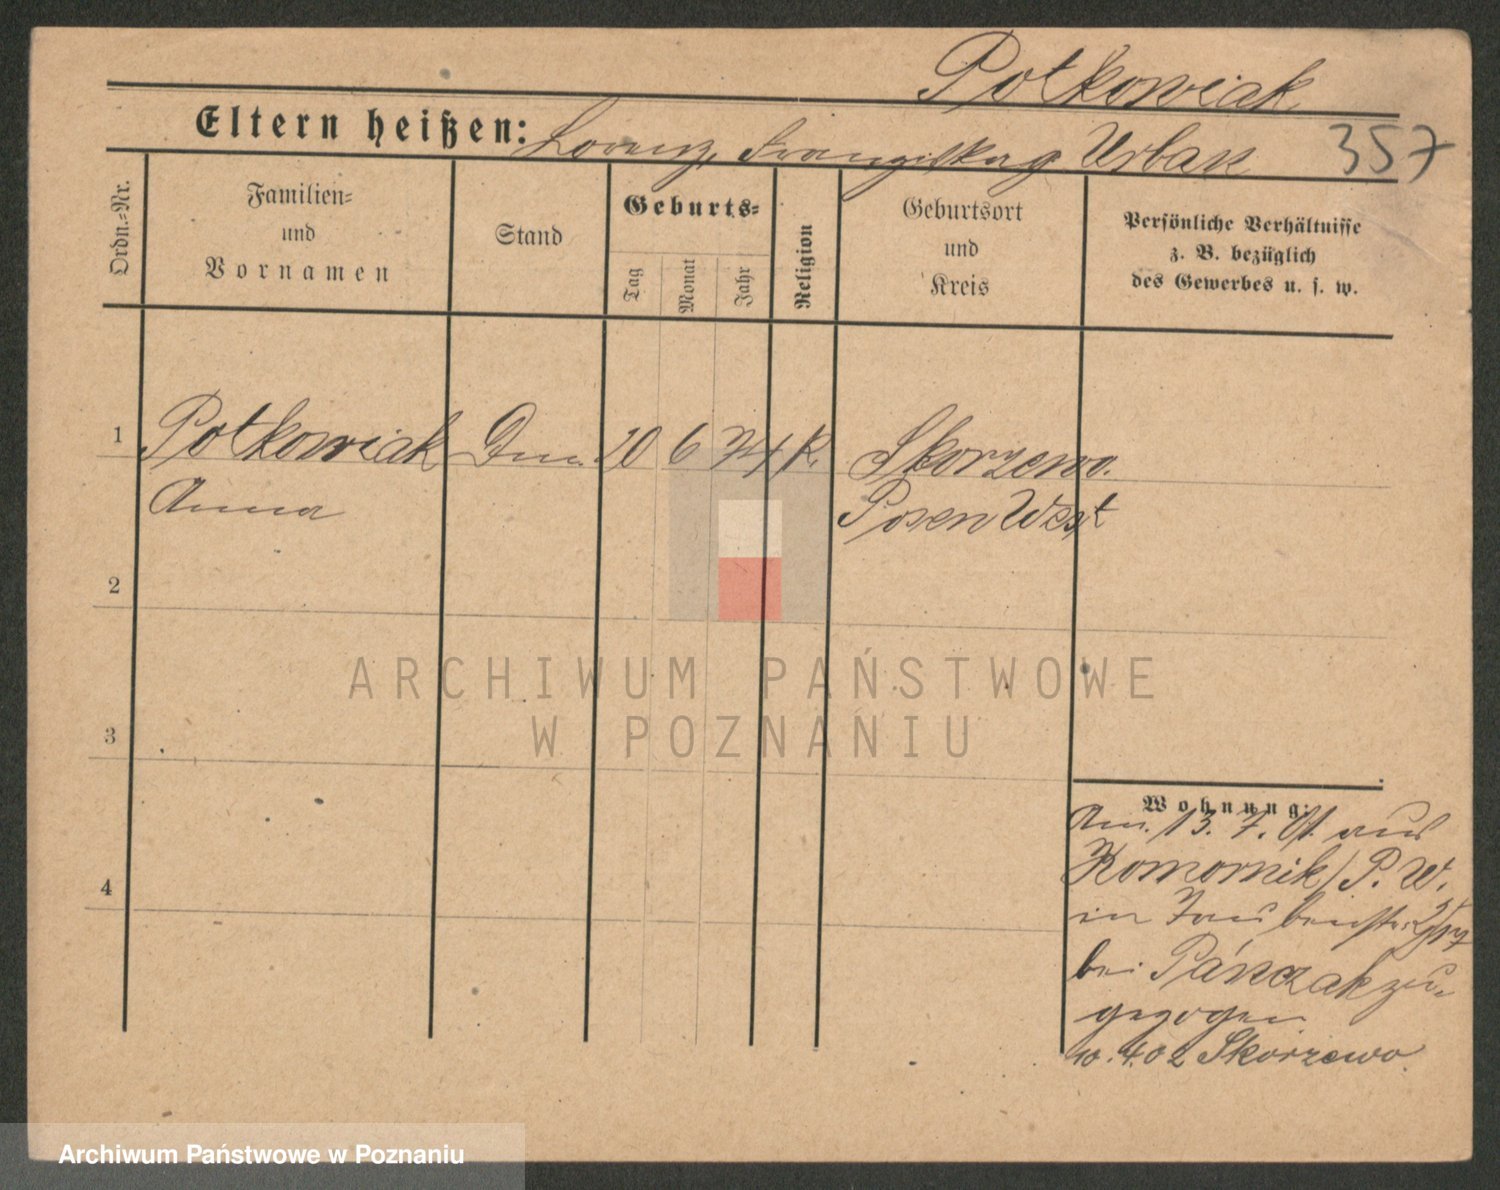 Potkowiak
Eltern heißen: Lorenz, Franziska g. Urban 357
Ordn.=Nr.
Familien=
und
Vornamen
Stand
Geburts=
Tag
Monat
Jahr
Religion
Geburtsort
und
Kreis
Persönliche Verhältnisse
z. B. bezüglich
des Gewerbes u. s. w.
1 Potkowiak 10 6 74 K. Skorzewo.
Anna Posen West
2
ARCHIWUM PAŃSTWOWE
W POZNANIU
3
Wohnung:
Am 13. 7. 01. aus
4 Komornik / P. W.
in
bei Pańczak zu-
gezogen
10. 4. 02 Skorzewo.
Archiwum Państwowe w Poznaniu